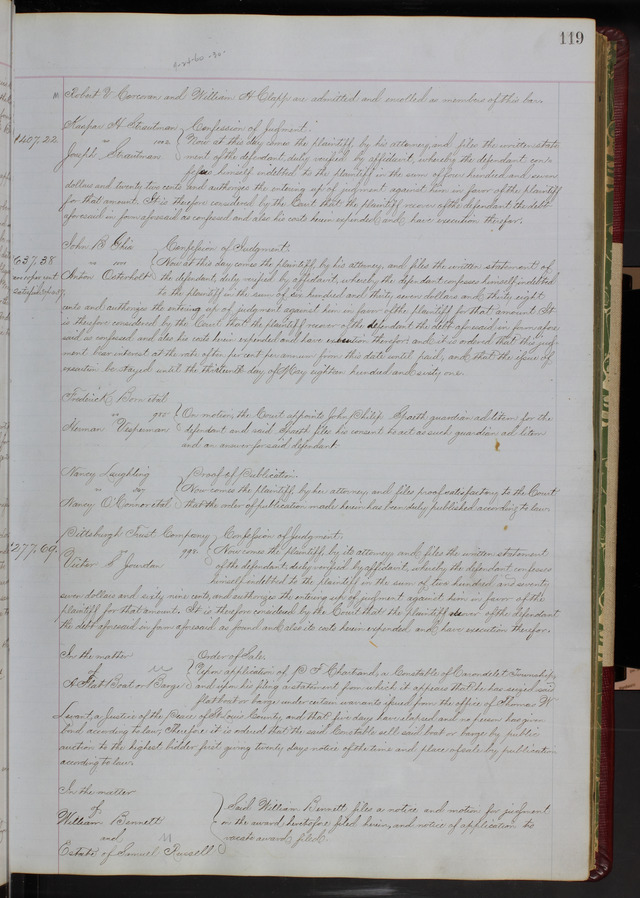 119
Robert V Corcoran and William H Clapp are admitted and enrolled as members of this bar.
Kaspar H Strautman Confession of Judgment.
$407.22 Now at this day comes the plaintiff, by his attorney, and files the written state
Joseph Strautman ment of the defendant, duly verified by affidavit, whereby the defendant con-
fesses himself indebted to the plaintiff in the sum of four hundred and seven
dollars and twenty two cents and authorizes the entering up of judgment against him in favor of the plaintiff
for that amount. It is therefore considered by the Court that the plaintiff recover of the defendant the debt
aforesaid in form aforesaid as confessed and also his costs herein expended, and have execution therefor.
John B Ghio Confession of Judgment.
637.38 Now at this day comes the plaintiff, by his attorney, and files the written statement of
Anton Osterholt the defendant, duly verified by affidavit, whereby the defendant confesses himself indebted
to the plaintiff in the sum of six hundred and thirty seven dollars and thirty eight
cents and authorizes the entering up of judgment against him in favor of the plaintiff for that amount. It
is therefore considered by the Court that the plaintiff recover of the defendant the debt aforesaid in form afore
said as confessed and also his costs herein expended and have execution therefor, and it is ordered that this judg-
ment bear interest at the rate of ten per cent per annum from this date until paid, and that the issue of
execution be stayed until the thirteenth day of May eighteen hundred and sixty one.
Frederick Horn et al
On motion, the Court appoints John Philip Spaeth guardian ad litem for the
Herman Vesperman defendant and said Spaeth files his consent to act as such guardian ad litem
and an answer for said defendant.
Nancy Laughling Proof of Publication.
Now comes the plaintiff, by her attorney and files proof satisfactory to the Court
Nancy O'Connor et al that the order of publication made herein has been duly published according to law.
Pittsburgh Trust Company Confession of Judgment.
$277.69 Now comes the plaintiff by its attorney, and files the written statement
Victor Jourdan of the defendant, duly verified by affidavit, whereby the defendant confesses
himself indebted to the plaintiff in the sum of two hundred and seventy
seven dollars and sixty nine cents, and authorizes the entering up of judgment against him in favor of the
plaintiff for that amount. It is therefore considered by the Court that the plaintiff recover of the defendant
the debt aforesaid in form aforesaid as found and also its costs herein expended and have execution therefor.
In the matter Order of Sale.
of Upon application of P F Chartrand, a Constable of Carondelet Township,
A Flat Boat or Barge and upon his filing a statement from which it appears that he has seized said
flat boat or barge under certain warrants issued from the office of Thomas W
a Justice of the Peace of St Louis County, and that five days have elapsed and no person has given
bond according to law, Therefore it is ordered that the said Constable sell said boat or barge by public
auction to the highest bidder first giving twenty days notice of the time and place of sale by publication
according to law.
In the matter
of Said William Bennett files a notice and motion for judgment
William Bennett on the award heretofore filed herein, and notice of application to
and vacate award filed.
Estate of Samuel Russell